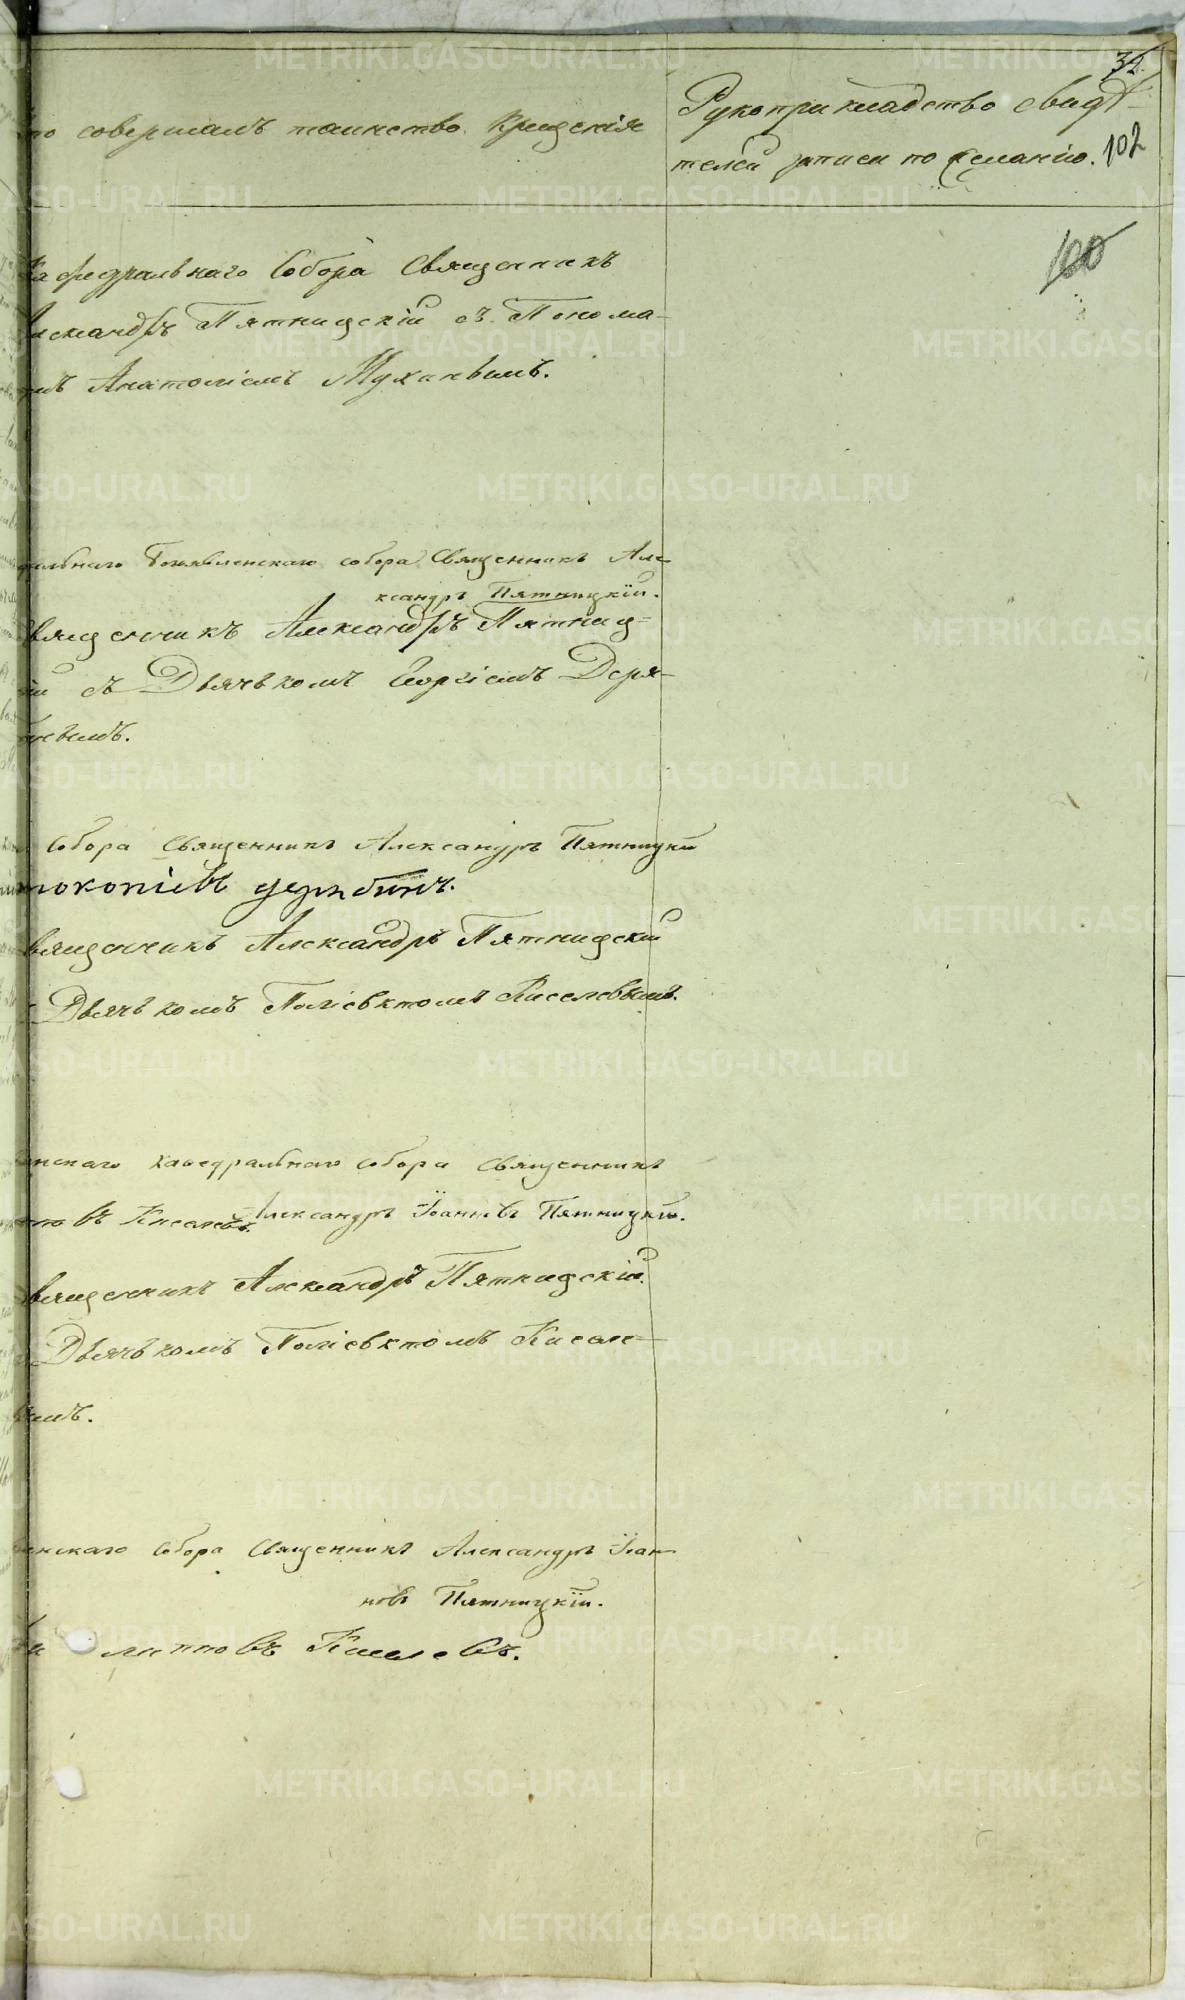 34.
то совершалъ таинство крещенія
Рукоприкладство свидѣ-
телей записи по желанію.
102
100
Кафедральнаго Собора Священникъ
Александръ Пятницкій съ Понома-
Анатоліемъ
ральнаго Богоявленскаго собора Священникъ Але-
ксандръ Пятницкій.
вященникъ Александръ Пятниц-
ій съ Дьячькомъ Георгіемъ Деря-
Собора Священникъ Александръ Пятницкій
вященникъ Александръ Пятницкій
Дьячькомъ Поліевктомъ Киселевымъ.
енскаго каѳедральнаго собора Священникъ
въ Киселевъ. Александръ Іоанновъ Пятницкій.
вященникъ Александръ Пятницкій.
Дьячькомъ Поліевктомъ Кисел-
ымъ.
енскаго собора Священникъ Александръ Іоан-
новъ Пятницкій.
Киселевъ.
METRIKI.GASO-URAL.RU